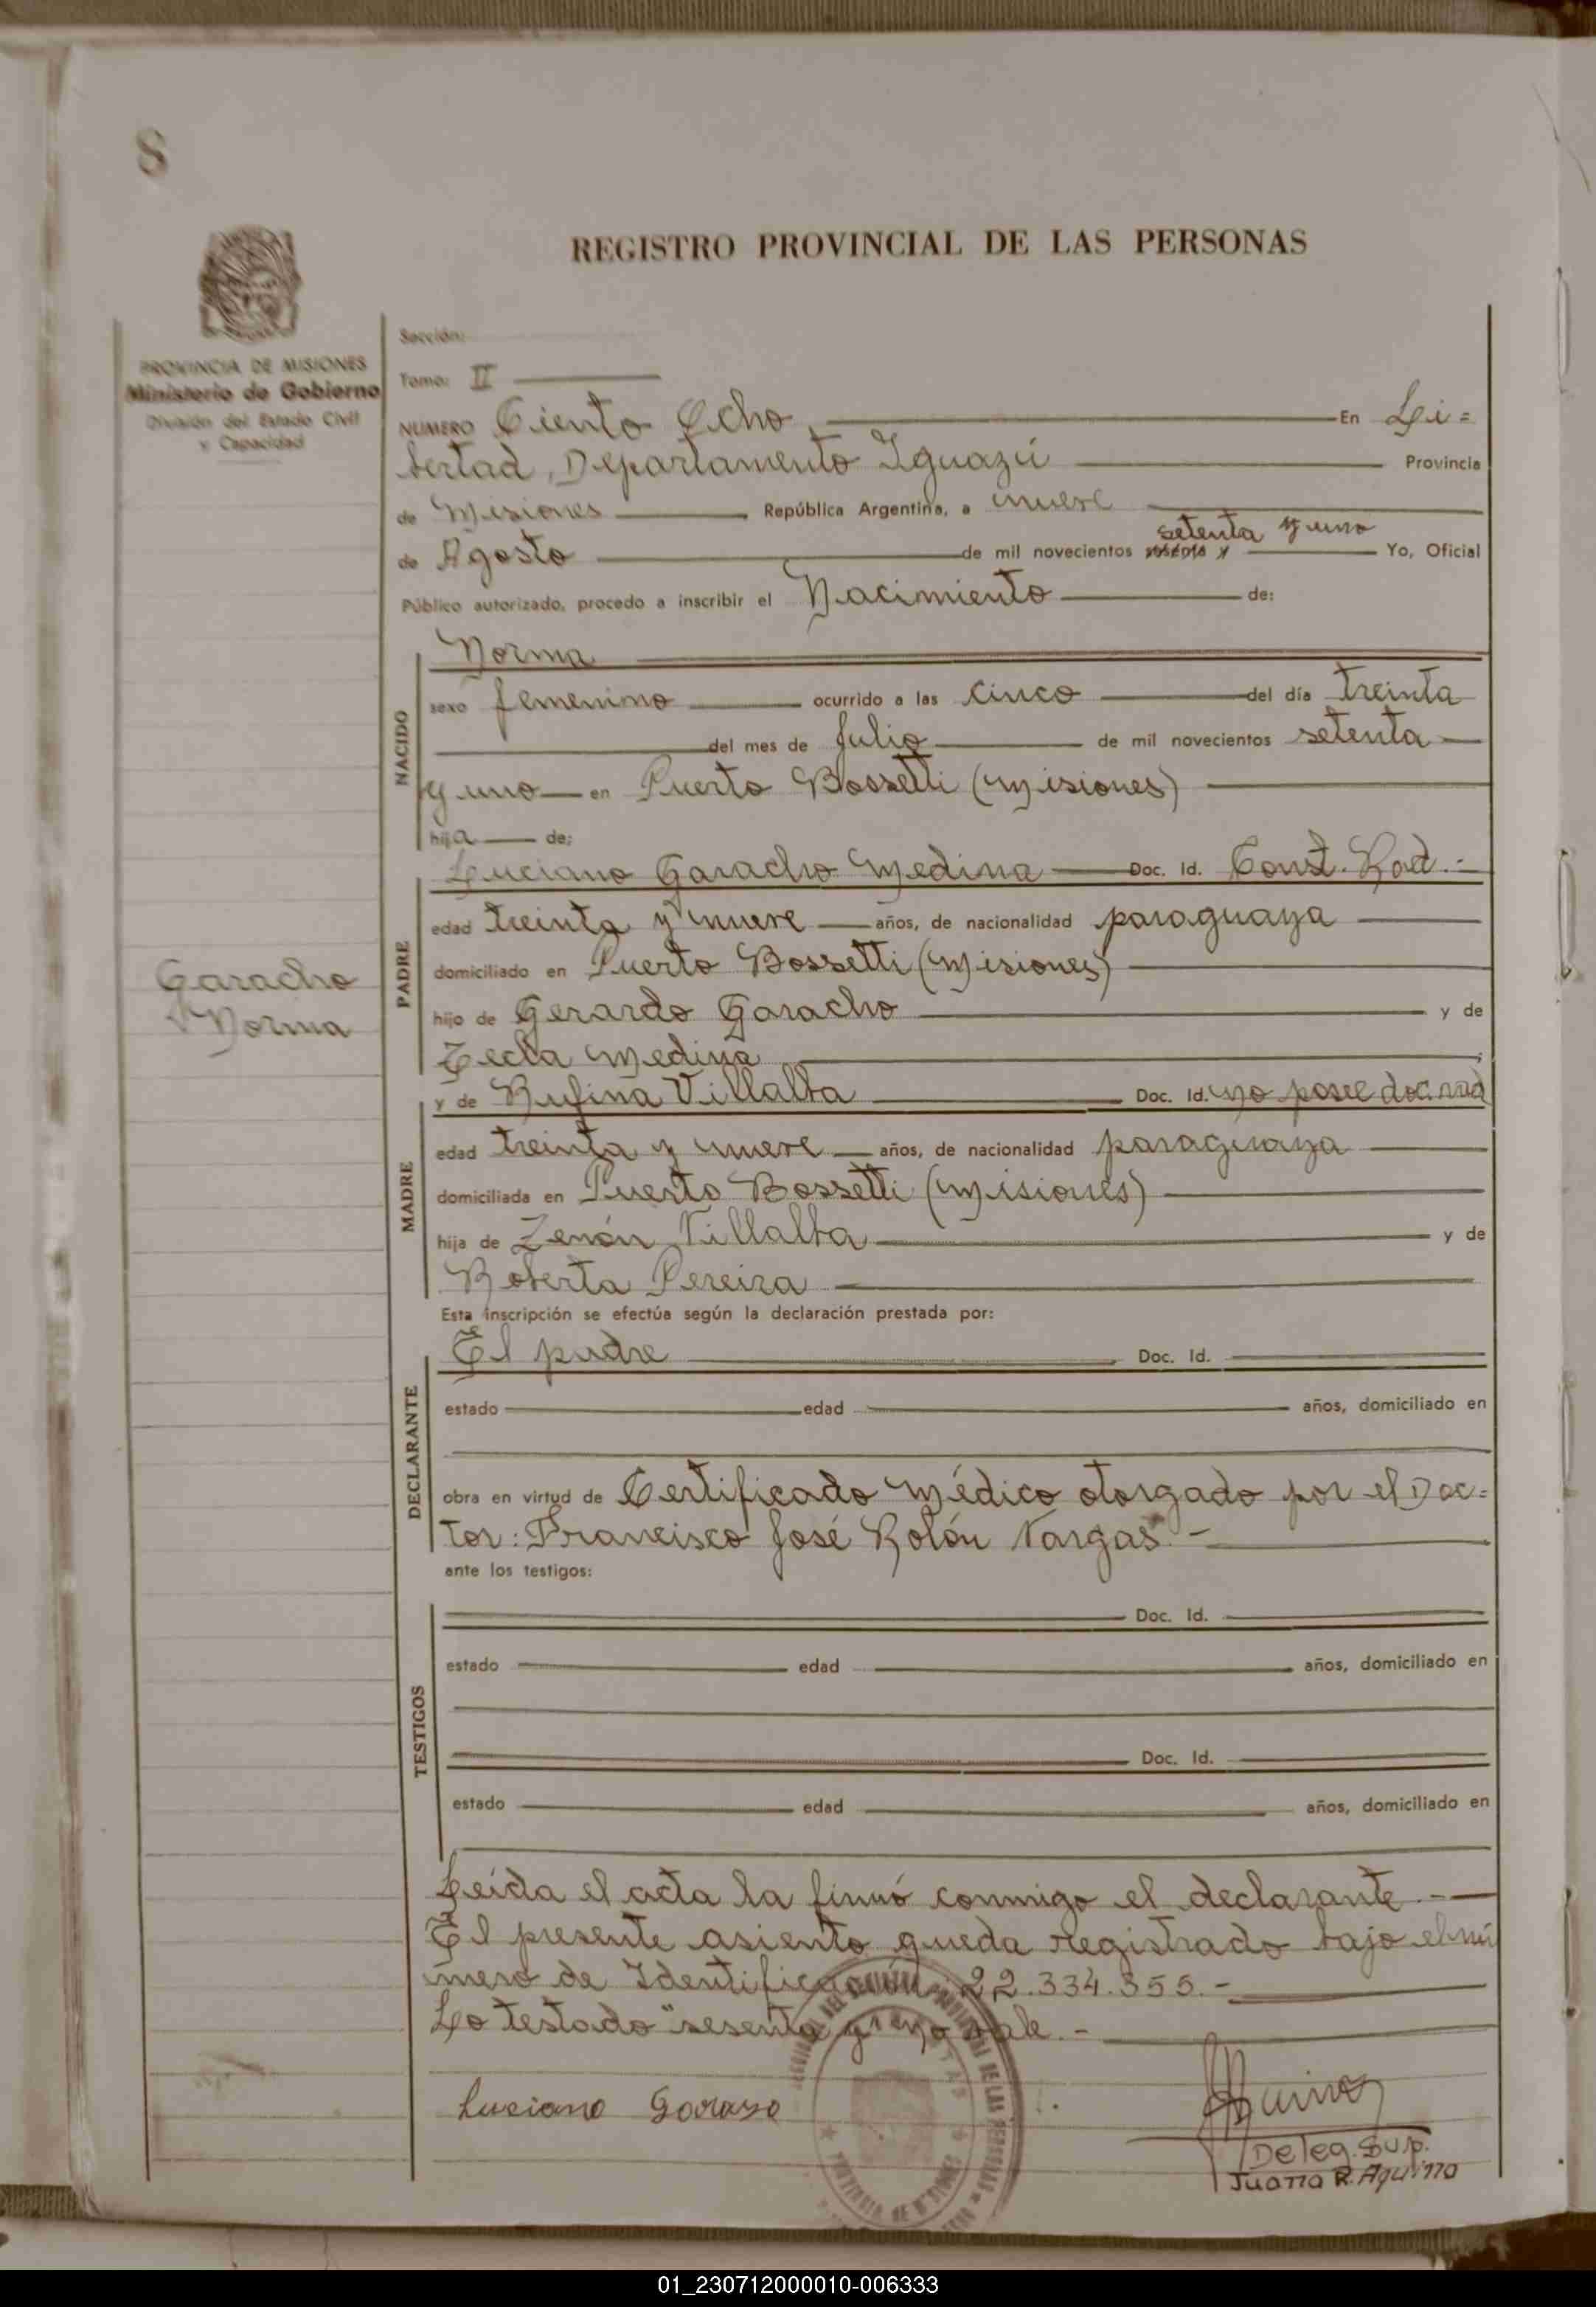 8
REGISTRO PROVINCIAL DE LAS PERSONAS
PROVINCIA DE MISIONES
Ministerio de Gobierno
División del Estado Civil
y Capacidad
Sección:
Tomo: II
NUMERO Ciento Ocho En Li=
bertad, Departamento Iguazú Provincia
de Misiones República Argentina, a nueve
setenta y uno
de Agosto de mil novecientos sesenta y Yo, Oficial
Público autorizado, procedo a inscribir el Nacimiento de:
NACIDO
Norma
sexo femenino ocurrido a las cinco del día treinta
del mes de Julio de mil novecientos setenta
y uno en Puerto Bossetti (Misiones)
hija de:
PADRE
Luciano Garacho Medina Doc. Id. Const. Rad.-
edad treinta y nueve años, de nacionalidad paraguaya
domiciliado en Puerto Bossetti (Misiones)
hijo de Gerardo Garacho y de
Tecla Medina ;
Garacho
Norma
MADRE
y de Rufina Villalba Doc. Id. No posee doc. nad
edad treinta y nueve años, de nacionalidad paraguaya
domiciliada en Puerto Bossetti (Misiones)
hija de Zenón Villalba y de
Roberta Pereira
Esta inscripción se efectúa según la declaración prestada por:
DECLARANTE
El padre Doc. Id.
estado edad años, domiciliado en
obra en virtud de Certificado Médico otorgado por el Doc=
tor: Francisco José Rolón Vargas.-
ante los testigos:
TESTIGOS
Doc. Id.
estado edad años, domiciliado en
Doc. Id.
estado edad años, domiciliado en
Leída el acta la firmó conmigo el declarante.-
El presente asiento queda registrado bajo el nú
mero de Identificación: 22.334.355.-
Lo testado "sesenta y" no vale.-
Luciano Garaso
Deleg. Sup.
Juana R. Aquino
PROVINCIA DE MISIONES
01_230712000010-006333